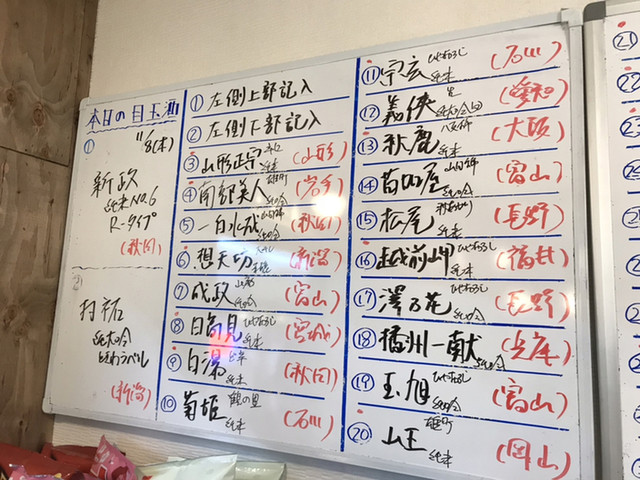 本日の目玉酒
11/8(木)
①
新政
純米No.6
R-タイプ
(秋田)
②
村祐
純米吟
ときわラベル
(新潟)
① 左側上部記入
② 左側下部記入
③ 山形正宗 純米 (山形)
④ 南部美人 雄町 純吟 (岩手)
⑤ 一白水成 山田錦 純吟 (秋田)
⑥ 想天坊 (新潟)
⑦ 成政 純吟 (富山)
⑧ 日高見 ひやおろし 純米 (宮城)
⑨ 白瀑 純米 (秋田)
⑩ 菊姫 鶴の里 純米 (石川)
⑪ 宗玄 ひやおろし 純米 (石川)
⑫ 義侠 (愛知)
⑬ 秋鹿 純米 (大阪)
⑭ 苗加屋 山田錦 純吟 (富山)
⑮ 松尾 純米 (長野)
⑯ 越前岬 ひやおろし 純米 (福井)
⑰ 澤乃花 ひやおろし 純吟 (長野)
⑱ 播州一献 純吟 (兵庫)
⑲ 玉旭 ひやおろし 純吟 (富山)
⑳ 雄町 純米 (岡山)
㉑
㉒